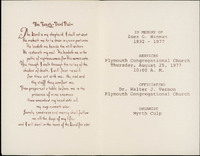 The Twenty-Third Psalm
The Lord is my shepherd; I shall not want
He maketh me to lie down in green pastures
He leadeth me beside the still waters
He restoreth my soul: He leadeth me in the
paths of righteousness for His name's sake
Yea, though I walk through the valley of the
shadow of death, I will fear no evil
For thou art with me; thy rod and
thy staff they comfort me
Thou preparest a table before me in the
presence of mine enemies
Thou anointest my head with oil
my cup runneth over
Surely goodness and mercy shall follow
me all the days of my life
and I will dwell in the house of the Lord for ever
IN MEMORY OF
1877
SERVICES
Plymouth Congregational Church
Thursday, August 25, 1977
10:00 A. M.
OFFICIATING
Dr. Walter J. Vernon
Plymouth Congregational Church
ORGANIST
Myrth Culp